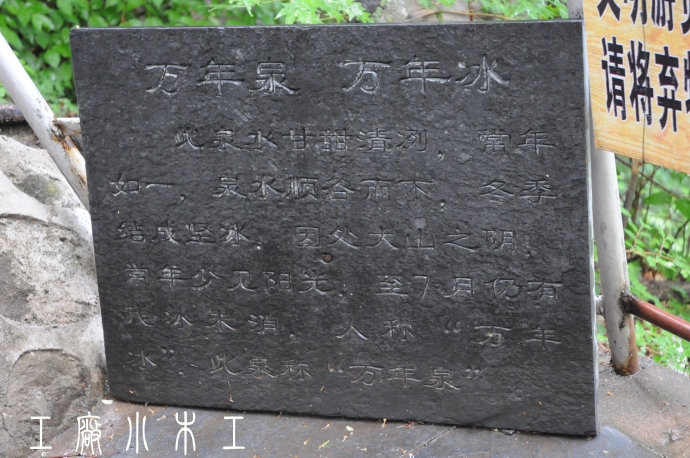 万年泉 万年冰
此泉水甘甜清冽，常年
如一，泉水顺谷而下，冬季
结成坚冰，因处大山之阴，
常年少见阳光，至7月仍有
冰未消，人称“万年
冰”，此泉称“万年泉”。
请将弃
工廠小木工